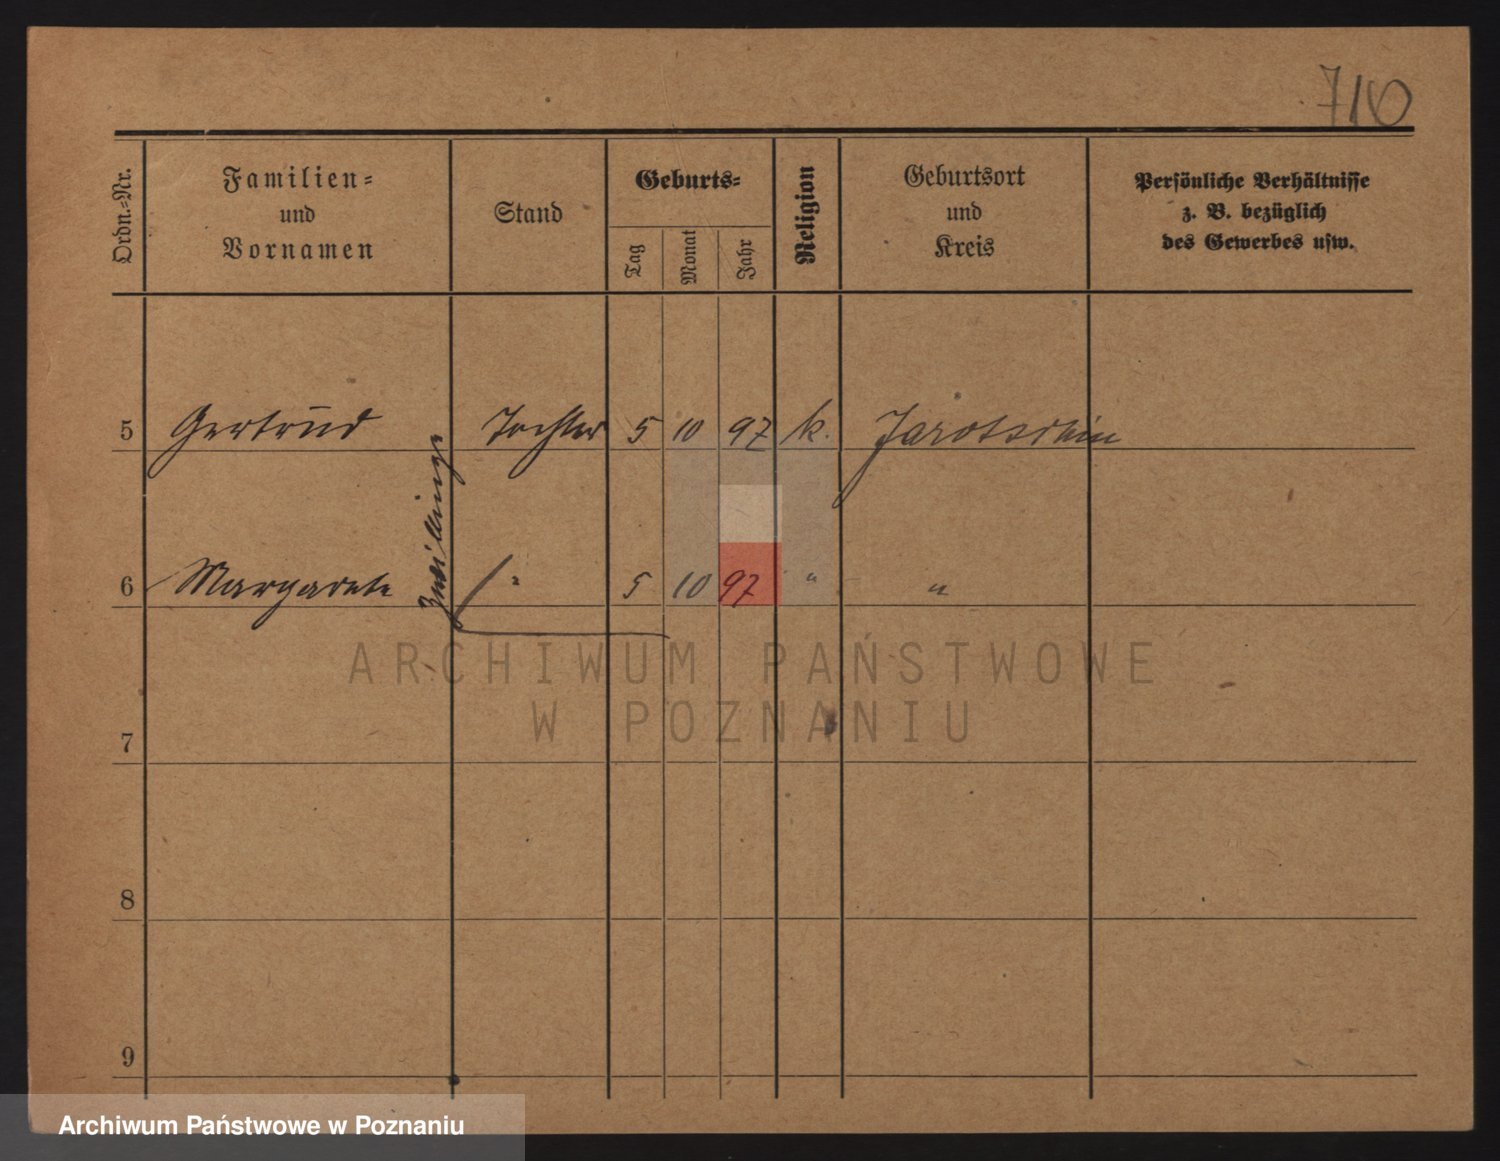 710
Ordn.-Nr.
Familien-
und
Vornamen
Stand
Geburts-
Tag
Monat
Jahr
Religion
Geburtsort
und
Kreis
Persönliche Verhältnisse
z. B. bezüglich
des Gewerbes usw.
5 Gertrud Tochter 5 10 97 k. Jarotschin
Zwillinge
6 Margarete " 5 10 97 " "
ARCHIWUM PAŃSTWOWE
W POZNANIU
7
8
9
Archiwum Państwowe w Poznaniu